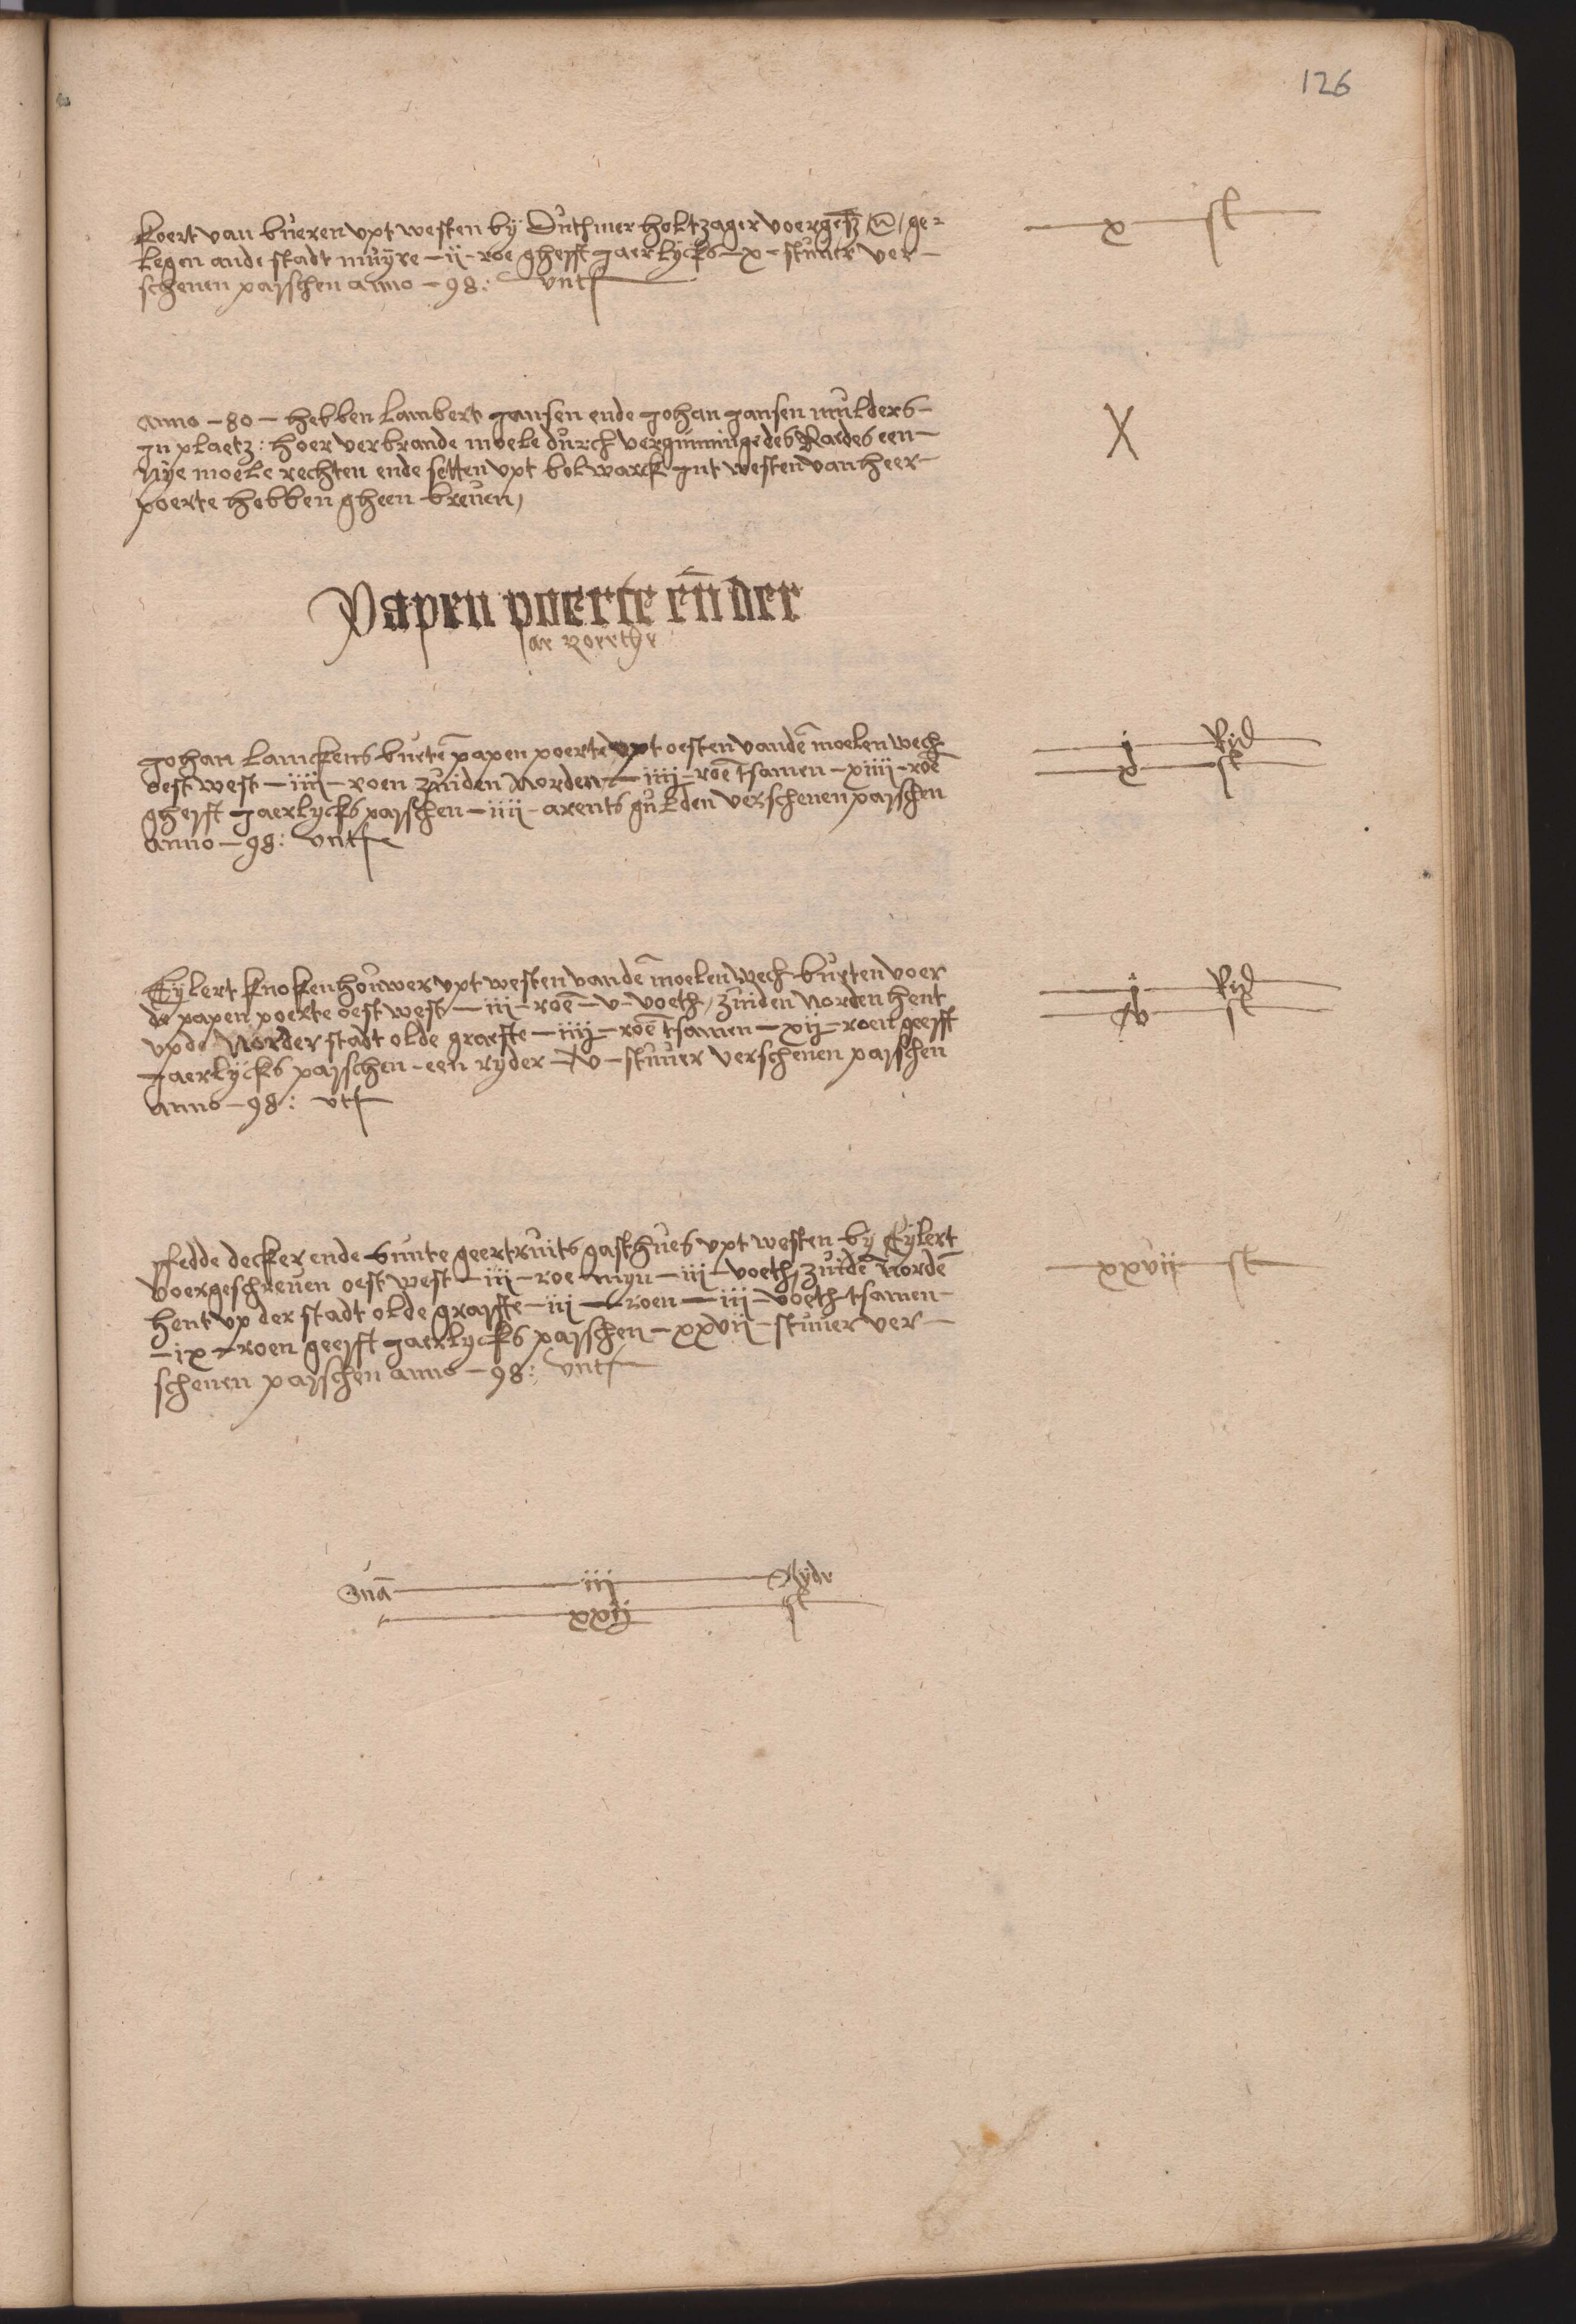 126
Koert van bueren vpt westen by Duthmer holtzager voergetz ge-
legen ande stadt muyre – ij – roe ghefft jaerlycks – x – stuuer ver-
schenen paschen anno – 98: vntf
x st
anno – 80 – hebben Lambert jansen ende johan jansen mulders –
jn plaetz: hoer verbrande moele durch vergunninge des Raedes een –
nye moele rechten ende setten vpt bolwarck jnt westen van heer –
poerte hebben gheen breuen,
X
Papen poerte en der
johan Lanckens buete papen poerte vpt oesten vande moelen wech
oest west – iiij – roen zuiden Norden – iiij – roe tsamen – xiiij – roe
ghefft jaerlycks paschen – iiij – arents gulden verschenen paschen
anno – 98: vntf
j Ryd
x st
Eylert knokenhouwer vpt westen vande moelen wech buyten voer
de papen poerte oest west – iij – roe – v – voeth, zuiden Norden hent
vpde Norder stadt olde graefte – iiij – roe tsamen – xij – roen geefft
jaerlycks paschen – een ryder – xv – stuuer verschenen paschen
anno – 98: vtf
j Ryd
xv st
ffedde decker ende sunte geertruits gasthues vpt westen by Eylert
voergeschreuen oest west – iij – roe myn – iij – voeth, zuide Norde
hent vp der stadt olde graffte – iij – roen – iij – voeth tsamen –
– ix – roen geefft jaerlycks paschen – xxvij – stuuer ver –
schenen paschen anno – 98: vntf
xxvij st
Sua iij Ryder
xxij st